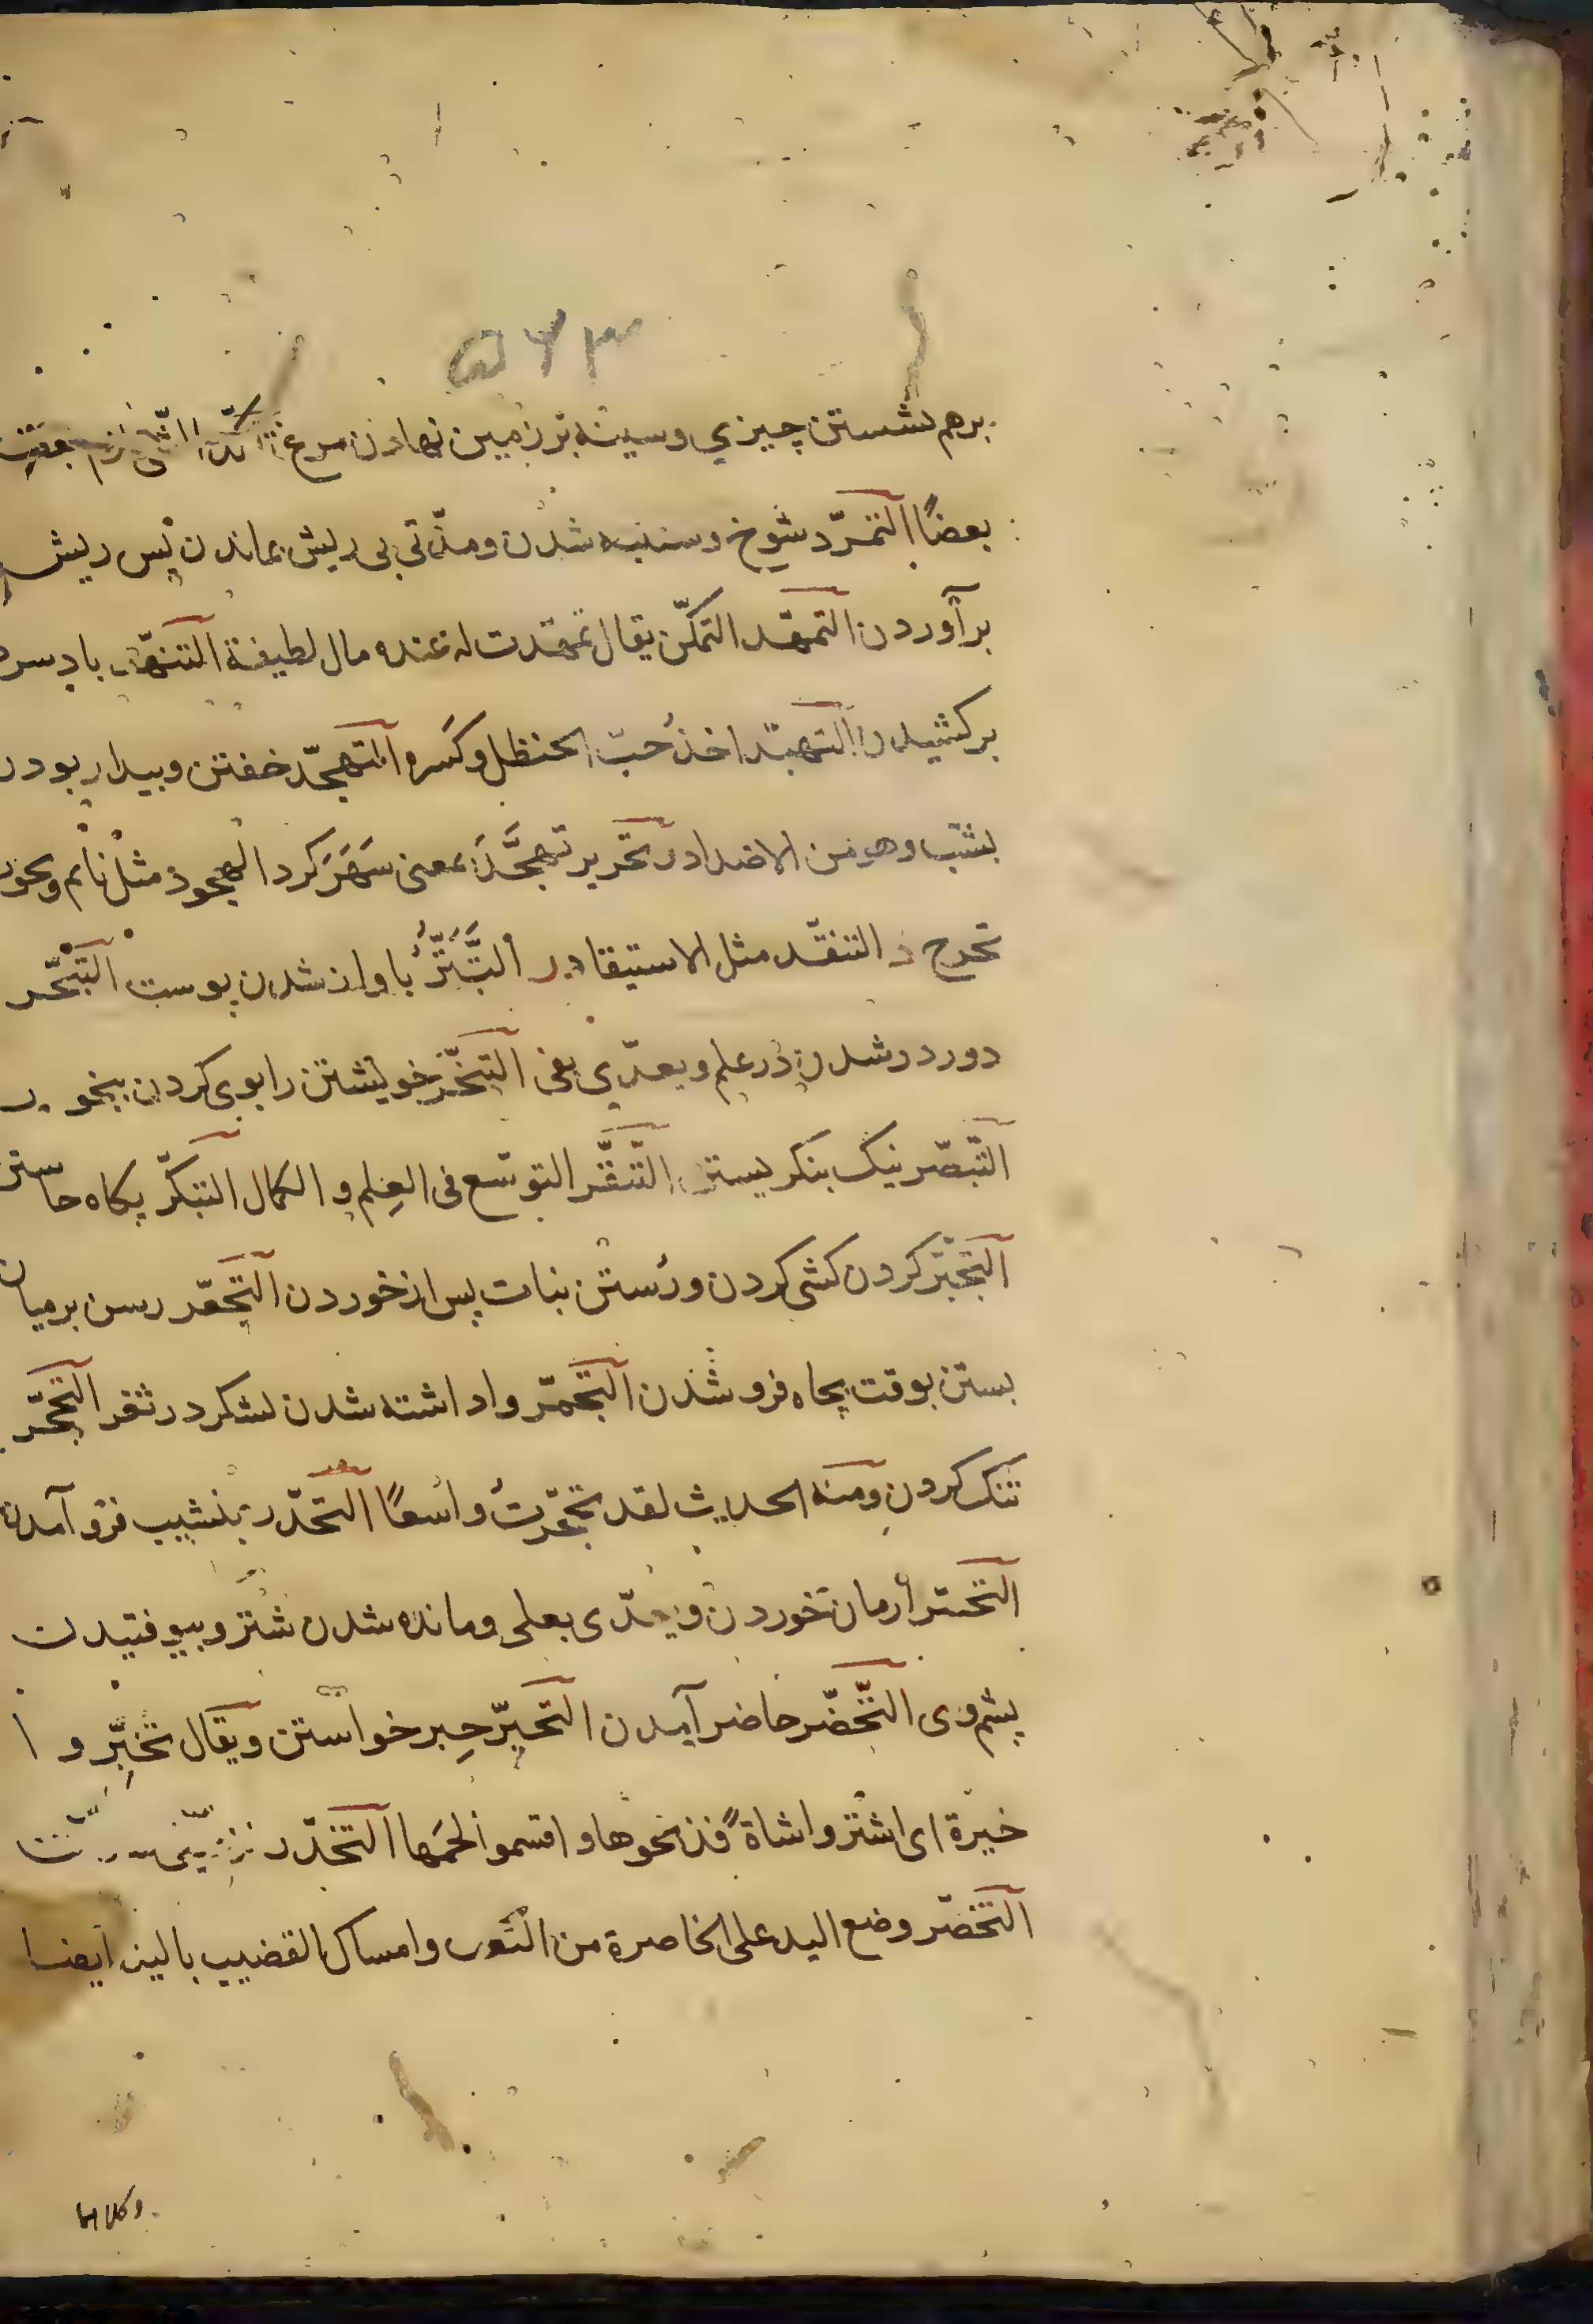 ۵۷۳
برهم نشستن چیزي وسینه بر زمین نهادن مرغ
بعضًا التمرّد شوخ وستنبه شدن ومدّتی بی ریش بماندن پس ریش
برآوردن التمهّد التمکّن یقال تمهّدت له عنده مال لطیفة التنهّد باد سرد
برکشیدن التهبّد اخذُ حبّ الحنظل وکسره التهجّد خفتن وبیدار بودن
بشب وهو من الاضداد تحریر تهجَّدَ بمعنی سَهَرَ کرد الهجود مثل نائم
تحرج د التنقّد مثل الاستیقاد ر البَّتَثُّر با وان شدن پوست التبحّر
دور در شدن در علم ویعدّی بفی التبخّر خویشتن را بوی کردن ببخور
التبصّر نیک بنکریستن التبقّر التوسّع فی العِلم و المال التبکّر پکاه خاستن
التجبّر کردن کشی کردن ورُستن نبات پس از خوردن التجعّر رسن بر میان
بستن بوقت بچاه فرو شدن التجمّر وا داشته شدن لشکر در ثغر التحجّر
تنک کردن ومنه الحدیث لقد تحجّرتَ واسعًا التحدّر بنشیب فرو آمدن
التحسّر أرمان خوردن ویعدّی بعلی ومانده شدن شتر وبیوفتیدن
پشم وی التحضّر حاضر آمدن التخبّر خبر خواستن ویقال تخبّروا
خبرة ای اشتروا شاةً فذبحوها واقتسموا لحمَها التخدّر
التخصّر وضع الید علی الخاصرة من التعب وامساک القضیب بالید ایضا
وکلاهما